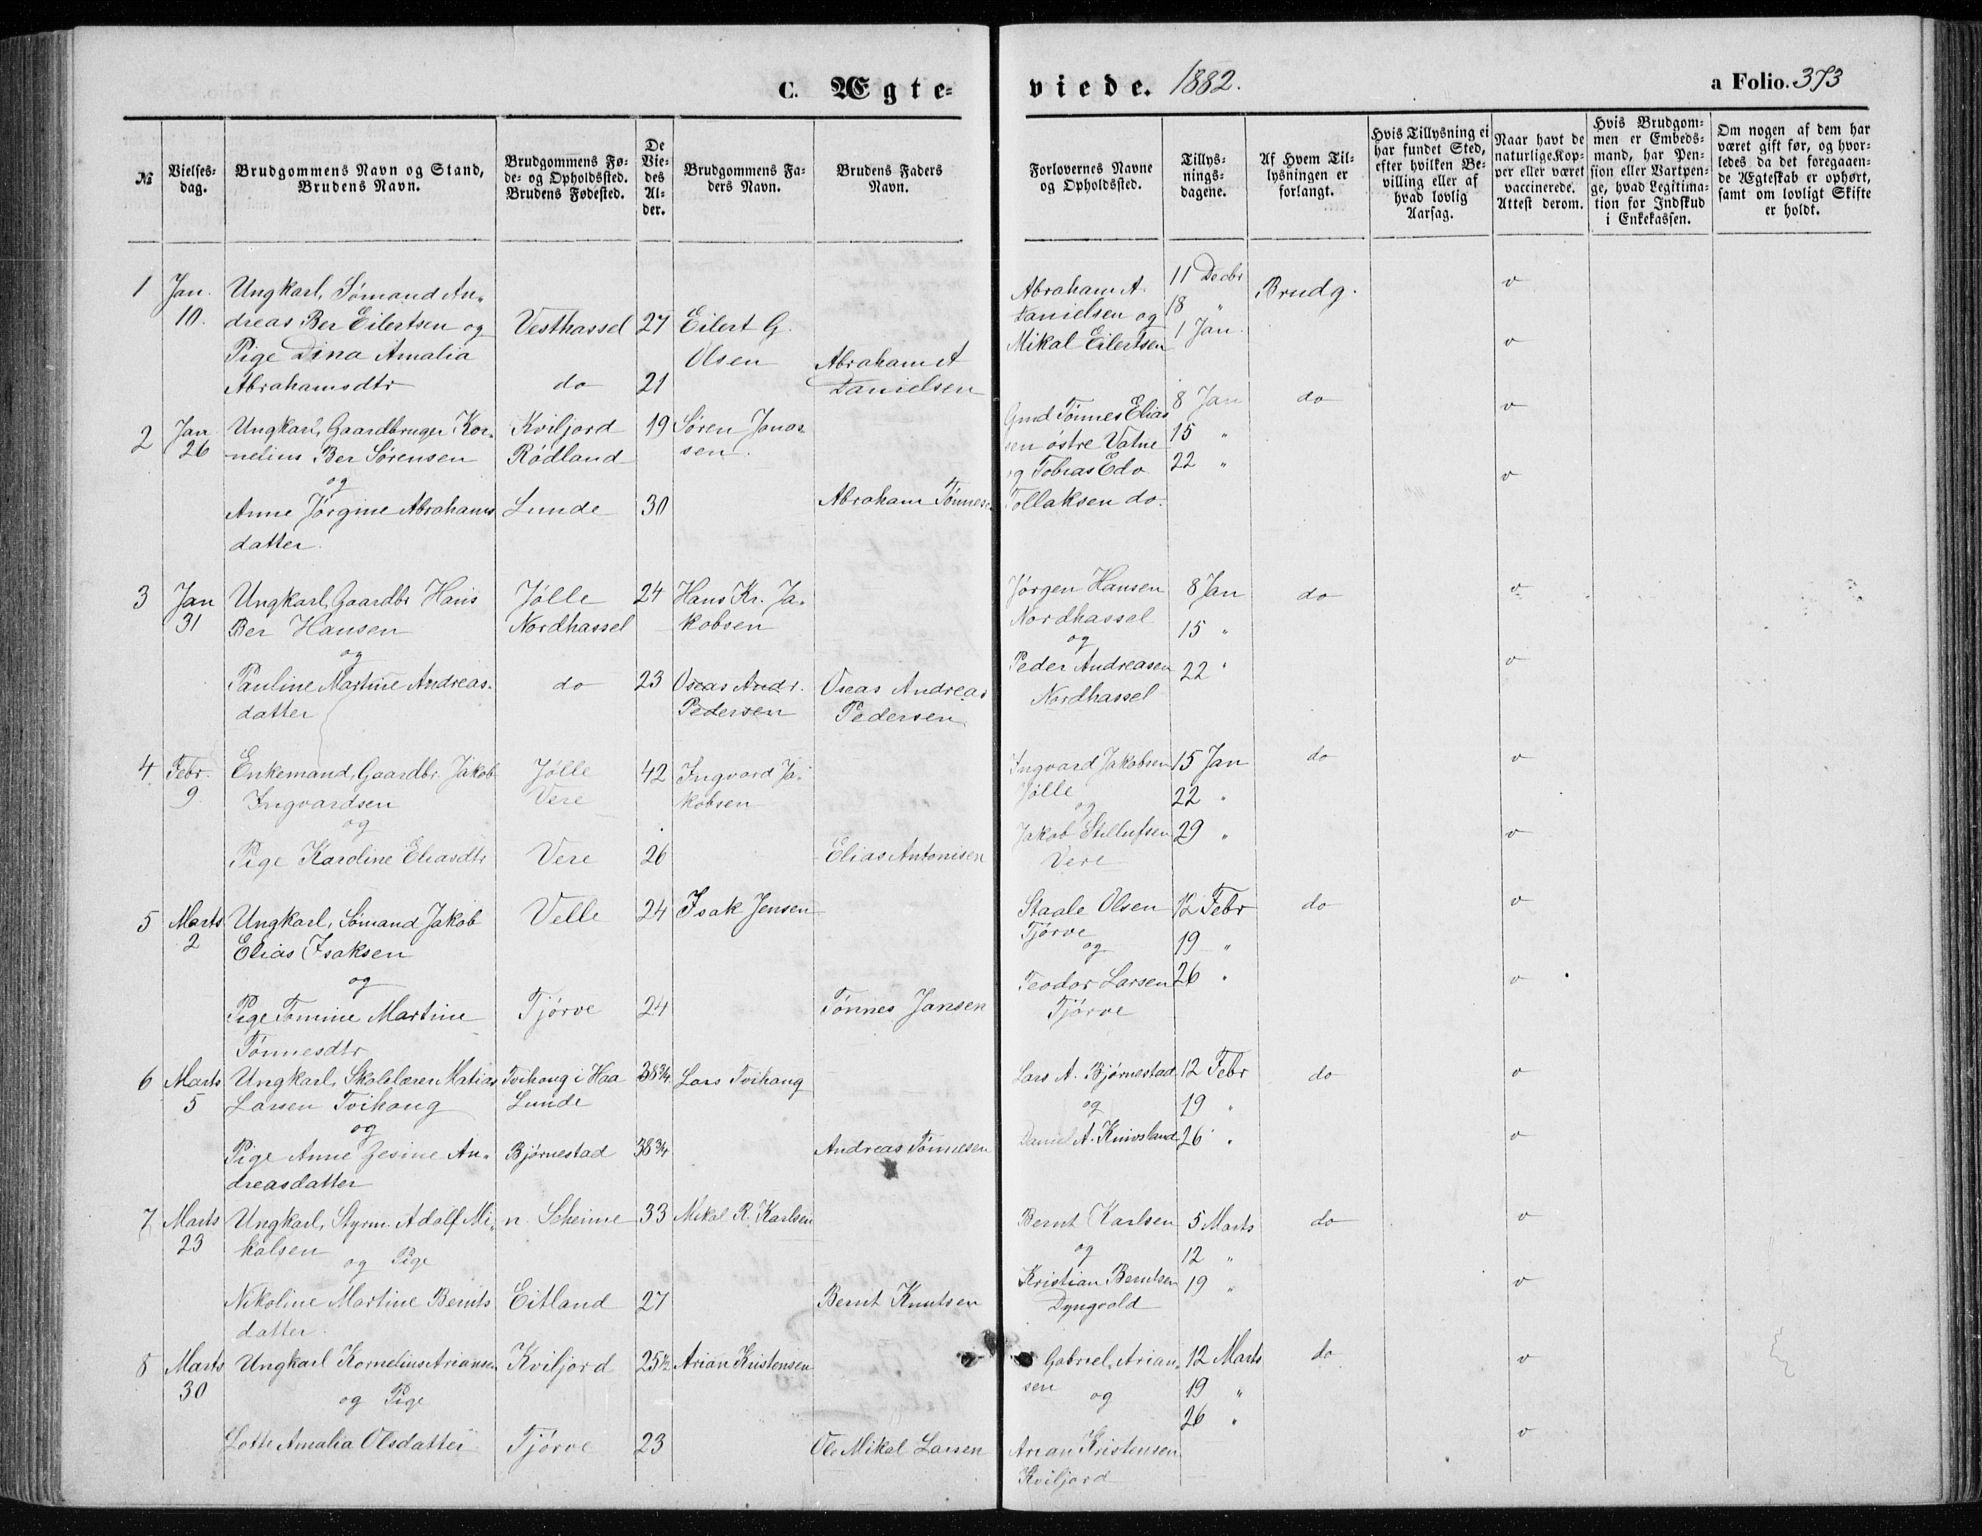 C. Ægte-
viede. 1882.
a Folio. 373
№
Vielses-
dag.
Brudgommens Navn og Stand,
Brudens Navn.
Brudgommens Fø-
de- og Opholdssted.
Brudens Fødested.
De
Vie-
des
Al-
der.
Brudgommens Fa-
ders Navn.
Brudens Faders
Navn.
Forlovernes Navne
og Opholdssted.
Tillys-
nings-
dagene.
Af Hvem Til-
lysningen er
forlangt.
Hvis Tillysning ei
har fundet Sted,
efter hvilken Be-
villing eller af
hvad lovlig
Aarsag.
Naar havt de
naturlige Kop-
per eller været
vaccinerede.
Attest derom.
Hvis Brudgom-
men er Embeds-
mand, har Pen-
sion eller Vartpen-
ge, hvad Legitima-
tion for Indskud
i Enkekassen.
Om nogen af dem har
været gift før, og hvor-
ledes da det foregaaen-
de Ægteskab er ophørt,
samt om lovligt Skifte
er holdt.
1
Jan.
10.
Ungkarl, Sømand An-
dreas Ber Eilertsen og
Pige Dina Amalia
Abrahamsdtr
Vesthassel
do
27
21
Eilert G.
Olsen
Abraham A
Danielsen
Abraham A.
Danielsen og
Mikal Eilertsen
11 Decbr
18 "
1 Jan.
Brudg.
v
v
2
Jan
26
Ungkarl, Gaardbruger Kor-
nelius Ber Sørensen
og
Anne Jørgine Abrahams
datter.
Kviljord
Rødland
Lunde
19
30
Søren Jonas-
sen.
Abraham Tønnes.
Gmd Tønnes Elias
sen østre Vatne
og Tobias Edv
Tollaksen do.
8 Jan
15 "
22 "
do
v
v
3
Jan
31
Ungkarl, Gaardbr Hans
Ber Hansen
og
Pauline Martine Andreas-
datter
Jølle
Nordhassel
do
24
23
Hans Kr. Ja-
kobsen
Oseas Andr.
Pedersen
Oseas Andreas
Pedersen
Jørgen Hansen
Nordhassel
og
Peder Andreasen
Nordhassel
8 Jan
15 "
22 "
do
v
v
4
Febr.
9
Enkemand, Gaardbr. Jakob
Ingvardsen
og
Pige Karoline Eliasdtr
Jølle
Vere
Vere
42
26
Ingvard Ja-
kobsen
Elias Antonisen
Ingvard Jakobsen
Jølle
og
Jakob Stellufsen
Vere
15 Jan
22 "
29 "
do
v
v
5
Marts
2
Ungkarl, Sømand Jakob
Elias Isaksen
og
Pige Tomine Martine
Tønnesdtr
Velle
Tjørve
24
24
Isak Jensen
Tønnes Jansen
Staale Olsen
Tjørve
og
Teodor Larsen
Tjørve
12 Febr
19 "
26 "
do
v
v
6
Marts
5
Ungkarl, Skolelærer Matias
Larsen Tvihoug
og
Pige Anne Jesine An-
dreasdatter
Tvihoug i Haa
Lunde
Bjørnestad
38¾
38¾
Lars Tvihaug
Andreas Tønnesen
Lars A. Bjørnestad
og
Daniel A. Knivsland
12 Febr
19 "
26 "
do
v
v
7
Marts
23
Ungkarl, Styrm. Adolf Mi-
kalsen
og Pige
Nikoline Martine Bernts
datter.
n. Skeime
Eitland
33
27
Mikal R. Karlsen
Bernt Knutsen
Bernt Karlsen
og
Kristian Berntsen
Dyngvold
5 Marts
12 "
19 "
do
v
v
8
Marts
30
Ungkarl Kornelius Ariansen
og Pige
Lotte Amalia Olsdatter
Kviljord
Tjørve
25½
23
Arian Kristensen
Ole Mikal Larsen
Gabriel Arian-
sen
og
Arian Kristensen
Kviljord
12 Marts
19 "
26 "
do
v
v